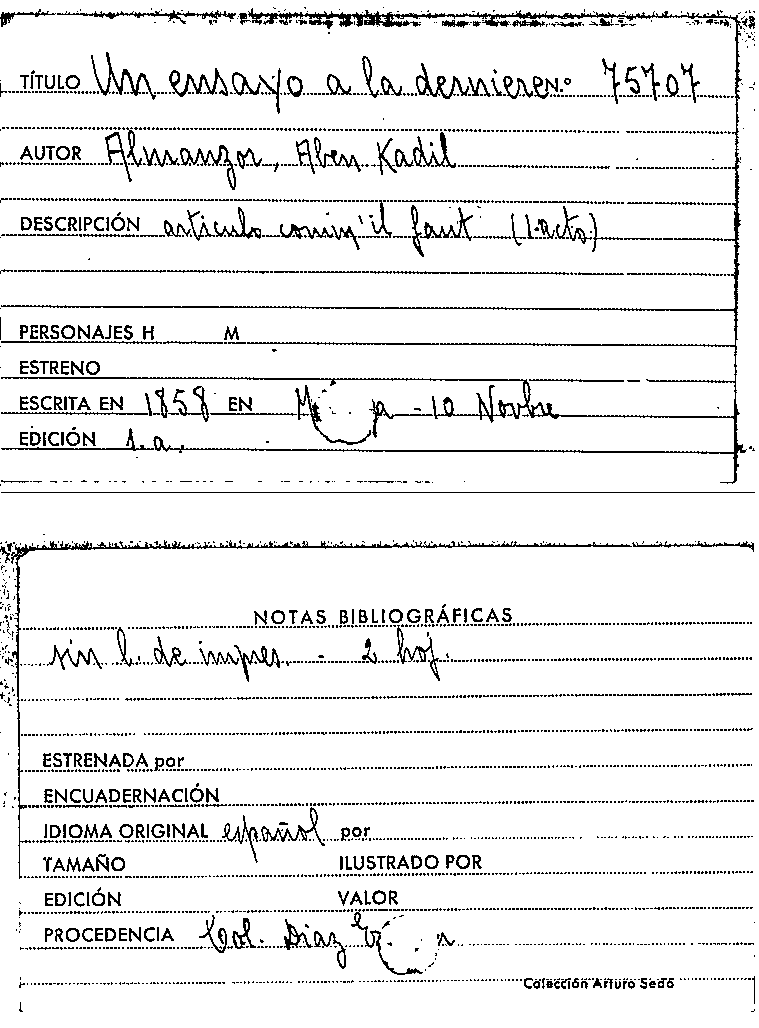 TÍTULO Un ensayo a la derniere N.º 75707
AUTOR Almanzor, Aben Kadil
DESCRIPCIÓN articulo comm'il faut (1-acto)
PERSONAJES H M
ESTRENO
ESCRITA EN 1858 EN - 10 Novbre
EDICIÓN 1.a.
NOTAS BIBLIOGRÁFICAS
sin l. de impres. - 2 hoj.
ESTRENADA por
ENCUADERNACIÓN
IDIOMA ORIGINAL español por
TAMAÑO ILUSTRADO POR
EDICIÓN VALOR
PROCEDENCIA Col. Diaz
Colección Arturo Sedó